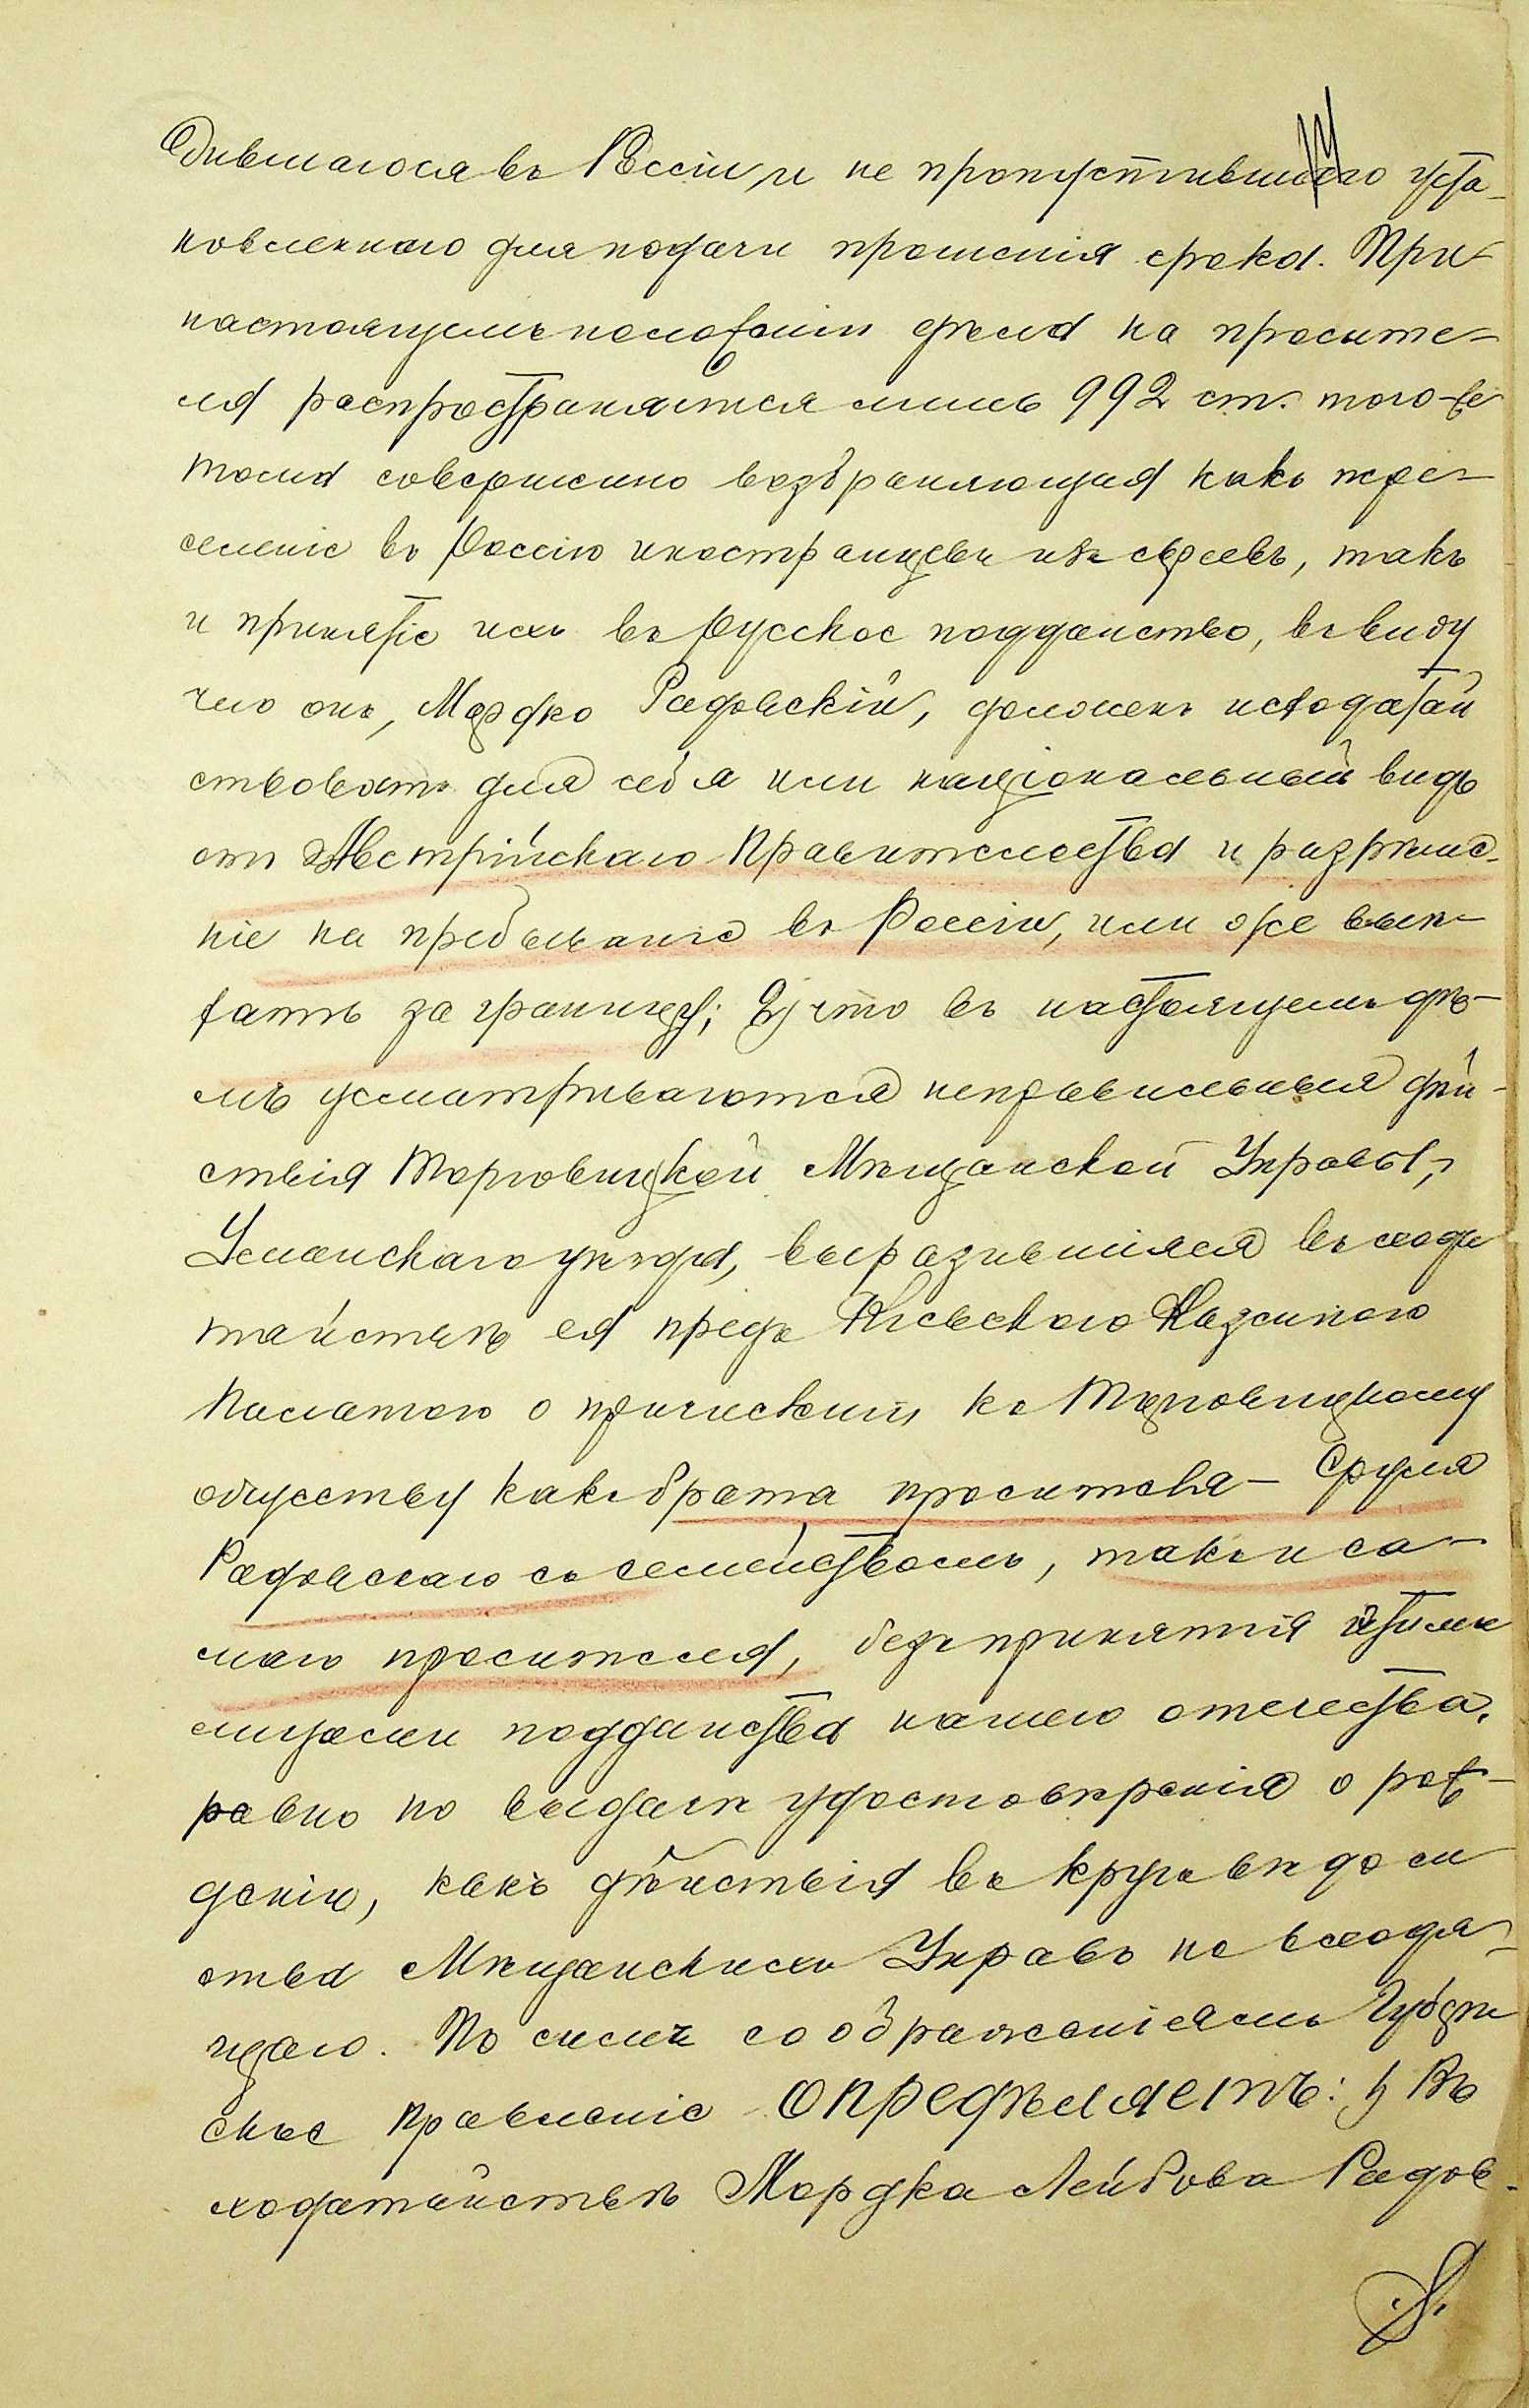 дившагося въ Россіи, и не пропустившаго уста-
новленнаго для подачи прошенія срока. При
настоящемъ положеніи дѣла на просите-
ля распространяется лишь 992 ст. того-же
тома совершенно возбраняющая какъ пере-
селеніе въ Россію иностранцевъ изъ евреевъ, такъ
и принятіе ихъ въ Русское подданство, въ виду
чего онъ, Мордко Радовскій, долженъ исходатай
ствовать для себя или національный видъ
отъ Австрійскаго Правительства и разрѣше-
ніе на пребываніе въ Россіи, или же выѣ-
хать за границу; 2) что въ настоящемъ дѣ-
лѣ усматриваются неправильныя дѣй-
ствія Торговицкой Мѣщанской Управы,
Уманскаго уѣзда, выразившіяся въ хода
тайствѣ ея предъ Кіевскою Казенною
Палатою о причисленіи къ Торговицкому
обществу какъ брата просителя - Сруля
Радовскаго съ семействомъ, такъ и са-
маго просителя, безъ принятія этими
лицами подданства нашего отечества,
равно по выдачѣ удостовѣренія о рож-
деніи, какъ дѣйствія въ кругъ вѣдом
ства Мѣщанскихъ Управъ не входя-
щаго. По симъ соображеніямъ Губерн
ское Правленіе Опредѣляетъ: 1) Въ
ходатайствѣ Мордка Лейбова Радов-